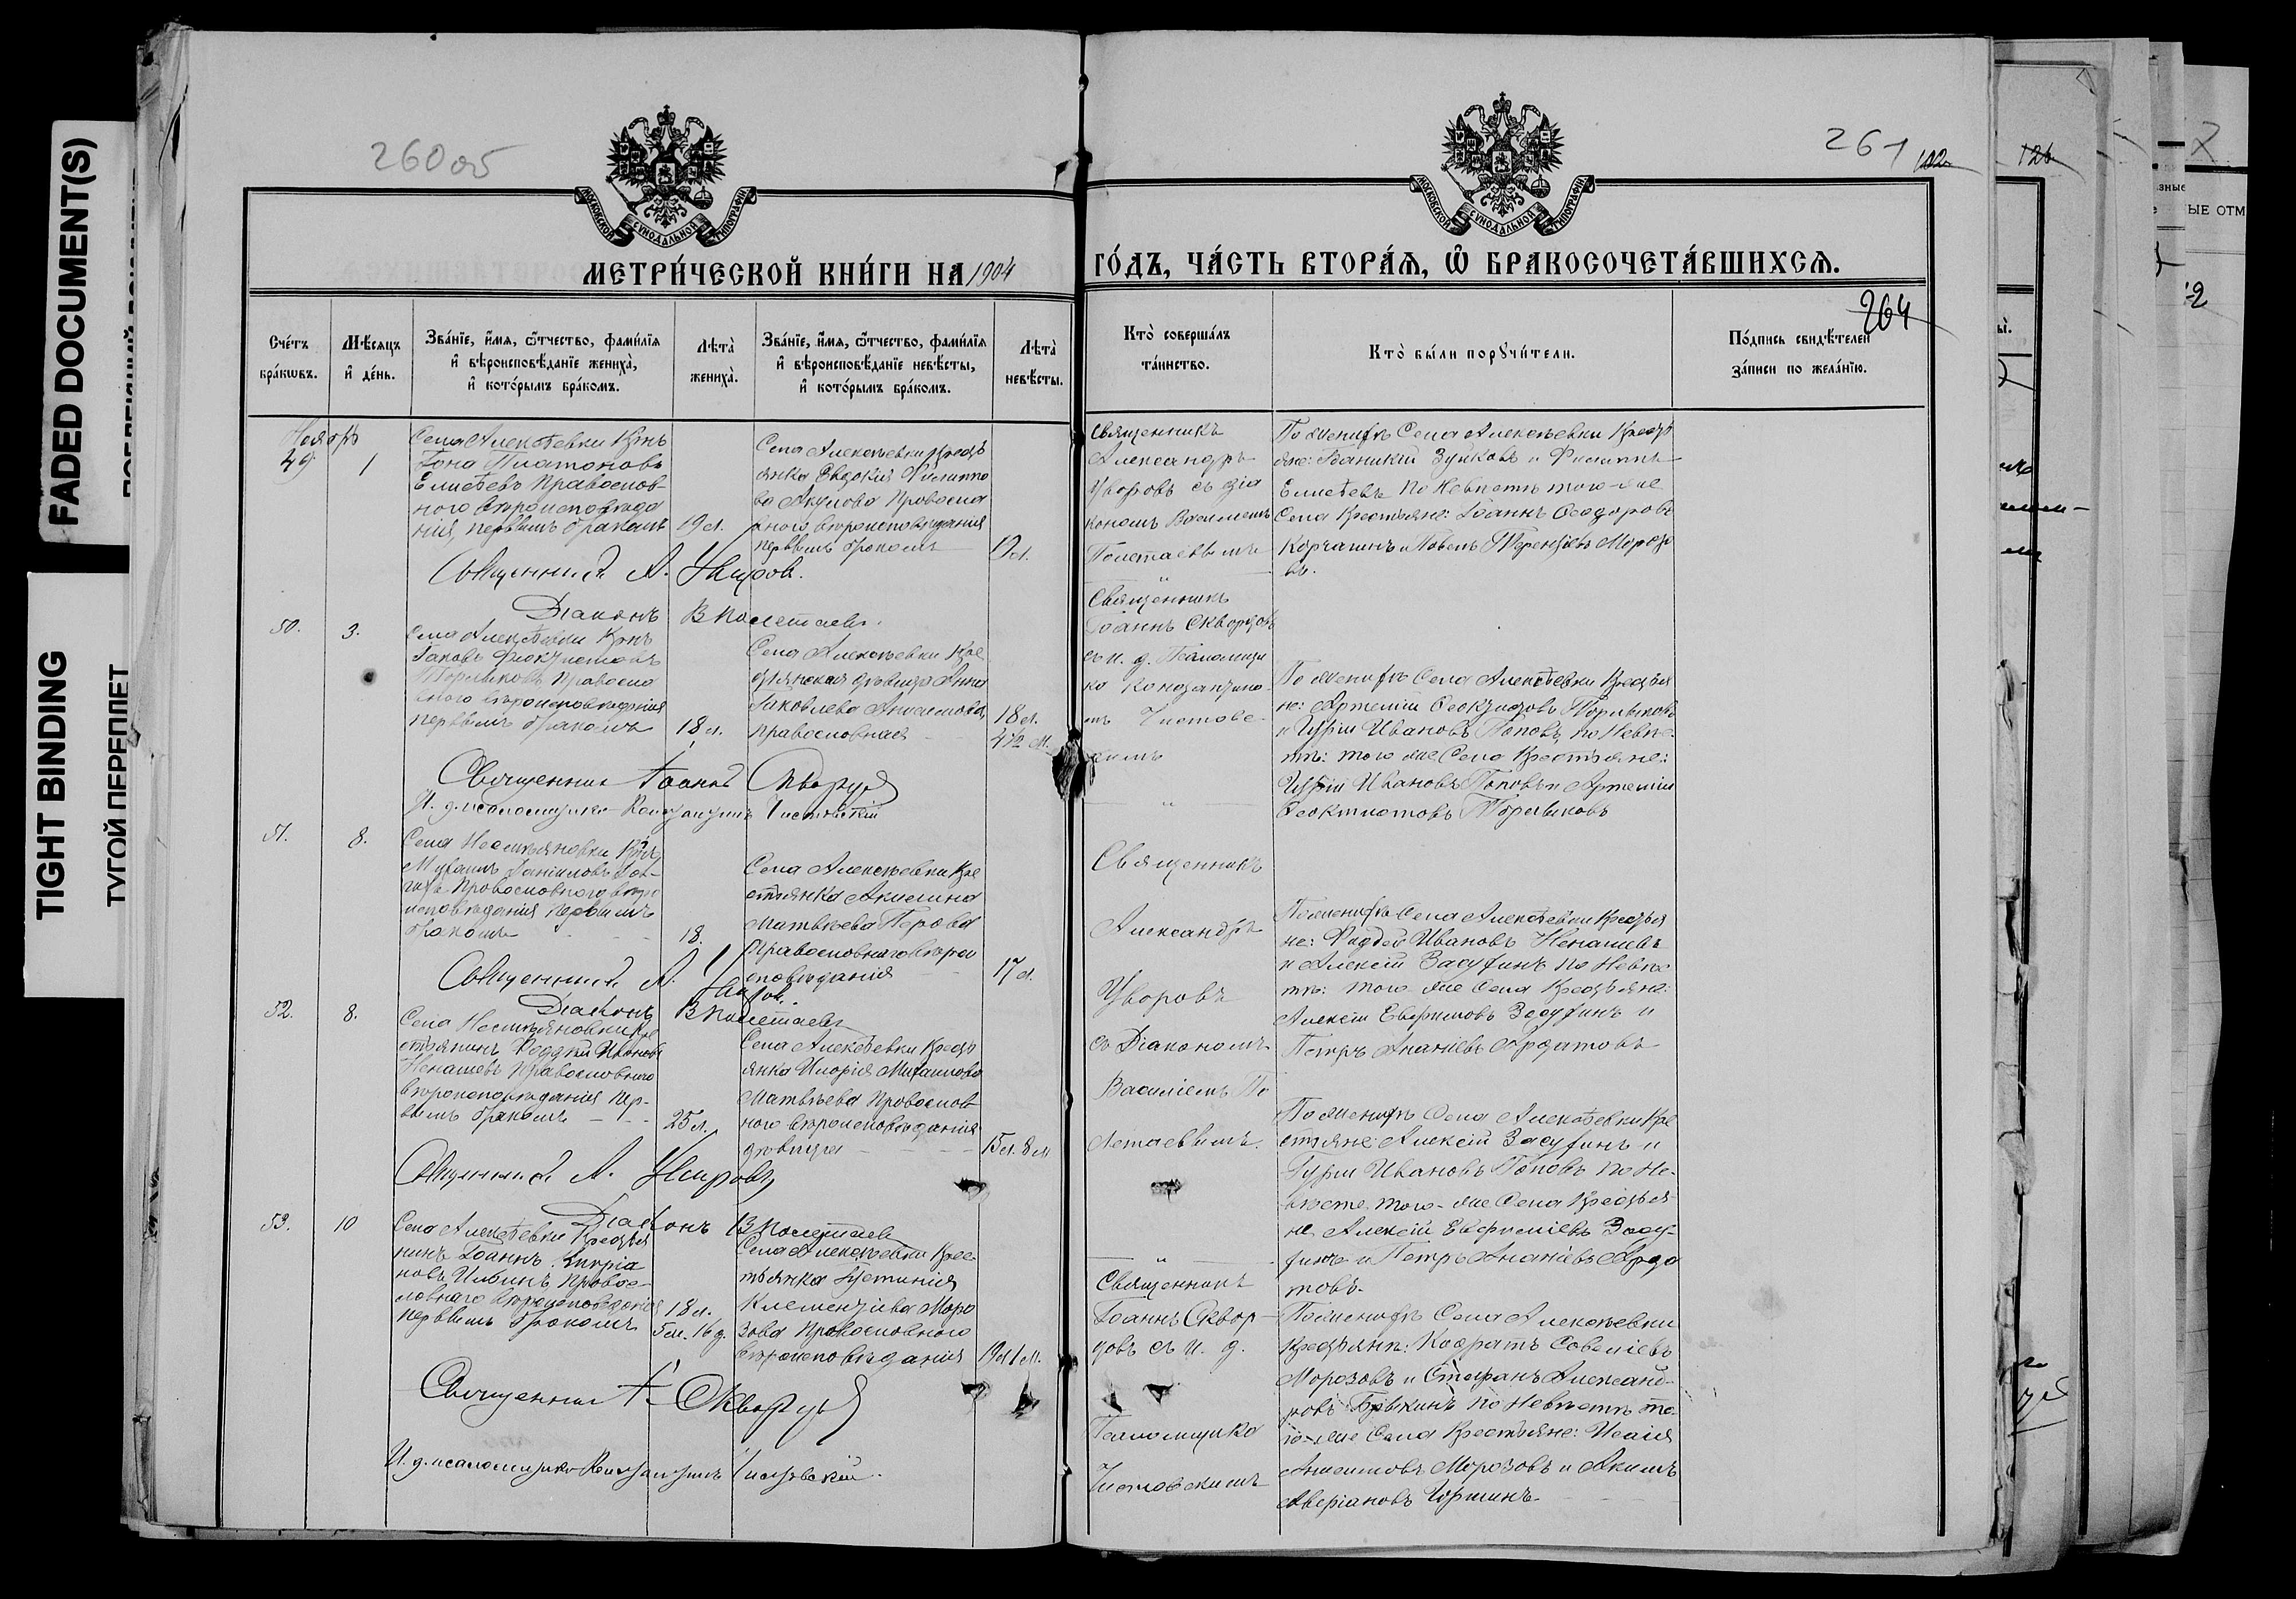 FADED DOCUMENT(S)
TIGHT BINDING
ТУГОЙ ПЕРЕПЛЕТ
260 об
261
102
126
МОСКОВСКОЙ СѴНОДАЛЬНОЙ ТИПОГРАФІИ
МОСКОВСКОЙ СѴНОДАЛЬНОЙ ТИПОГРАФІИ
МЕТРИ́ЧЕСКОЙ КНИ́ГИ НА 1904
ГО́ДЪ, ЧА́СТЬ ВТОРА́Ѧ, Ѽ БРАКОСОЧЕТА́ВШИХСѦ.
264
Сче́тъ бра́кѡвъ.
Мѣ́сяцъ и҆ де́нь.
Зва́нїе, и҆́мя, ѻ҆́тчество, фами́лїя и҆ вѣроисповѣ́данїе жениха̀, и҆ кото́рымъ бра́комъ.
Лѣта̀ жениха̀.
Зва́нїе, и҆́мя, ѻ҆́тчество, фами́лїя и҆ вѣроисповѣ́данїе невѣ́сты, и҆ кото́рымъ бра́комъ.
Лѣта̀ невѣ́сты.
Кто̀ соверша́лъ та́инство.
Кто̀ бы́ли порꙋчи́тели.
По́дпись свидѣ́телей за́писи по жела́нїю.
Ноябрь
49
1
Села Алексѣевки Крнъ
Іона Платоновъ
Елисѣевъ Православ-
наго вѣроисповѣда
нія, первымъ бракомъ
19 л.
Села Алексѣевки Кресть
янка Евдокія Филиппо
ва Акулова Правосла
внаго вѣроисповѣданія
первымъ бракомъ
19 л.
Священникъ
Александръ
Уваровъ съ діа
кономъ Василіемъ
Полетаевымъ
По женихѣ Села Алексѣевки Кресть
яне: Іоанникій Зуйковъ и Филиппъ
Елисѣевъ по Невѣстѣ того-же
Села Крестьяне: Іоаннъ Ѳеодоровъ
Корчагинъ и Павелъ Терентіевъ Морозо
въ.
Священникъ А. Уваровъ.
Діаконъ В Полетаевъ.
50.
3.
Села Алексѣевки Крнъ
Іаковъ Ѳеоктистовъ
Торлыковъ Правосла
внаго вѣроисповѣданія
первымъ бракомъ
18 л.
Села Алексѣевки Кре
стьянская дѣвица Анна
Іаковлева Анисимова,
православная
18 л.
4½ м.
Священникъ
Іоаннъ Скворцовъ
съ и. д. Псаломщи
ка Константино
мъ Чистовс
кимъ
По женихѣ Села Алексѣевки Крестья
не: Артемій Ѳеоктистовъ Торлыковъ
и Гурій Ивановъ Поповъ, по Невѣс
тѣ: того же Села Крестьяне:
Гурій Ивановъ Поповъ и Артемій
Ѳеоктистовъ Торлыковъ
Священникъ Іоаннъ Скворцовъ
И. д. псаломщика Константинъ Чистовскій
51.
8.
бракомъ
18.
Села Алексѣевки Кре
стьянка Акилина
Матвѣева Перова
Православнаго вѣрои
сповѣданія
17 л.
Священникъ
Александръ
Уваровъ
съ Діакономъ
Василіемъ По
летаевымъ.
По женихѣ Села Алексѣевки Крестья
не: Фаддей Ивановъ Ненашевъ
и Алексій Засухинъ по Невѣс
тѣ: того же Села Крестьяне:
Алексій Евфимовъ Засухинъ и
Петръ Ананіевъ Ардатовъ
Священникъ А. Уваровъ.
Діаконъ В Полетаевъ
52.
8.
стьянинъ Фаддей Ивановъ
Ненашевъ Православнаго
вѣроисповѣданія пер-
вымъ бракомъ
25 л.
Села Алексѣевки Кресть
янка Марія Михаилова
Матвѣева Православ
наго вѣроисповѣданія
дѣвица
15 л. 8 м
По женихѣ Села Алексѣевки Кре
стьяне: Алексій Засухинъ и
Гурій Ивановъ Поповъ по Не-
вѣсте того-же Села Крестья
не Алексій Евфиміевъ Засу-
хинъ и Петръ Ананіевъ Арда
товъ.
Священникъ А. Уваровъ
Діаконъ В Полетаевъ
53.
10
Села Алексѣевки Крестья
нинъ Іоаннъ Кипріа
новъ Ильинъ Правос-
лавнаго вѣроисповѣданія
первымъ бракомъ
18 л.
5 м. 16 д.
Села Алексѣевки Крес
тьянка Устинія
Климентіева Моро
зова Православнаго
вѣроисповѣданія
19 л 1 м.
Священникъ
Іоаннъ Сквор
цовъ съ и. д.
Псаломщика
Чистовскимъ
По женихѣ Села Алексѣевки
Крестьяне: Кодратъ Савеліевъ
Морозовъ и Стефанъ Александ-
ровъ по Невѣстѣ то-
го-же Села Крестьяне: Исаія
Анисимовъ Морозовъ и Акимъ
Аверіановъ
Священникъ І. Скворцовъ
И. д. псаломщика Константинъ Чистовскій.